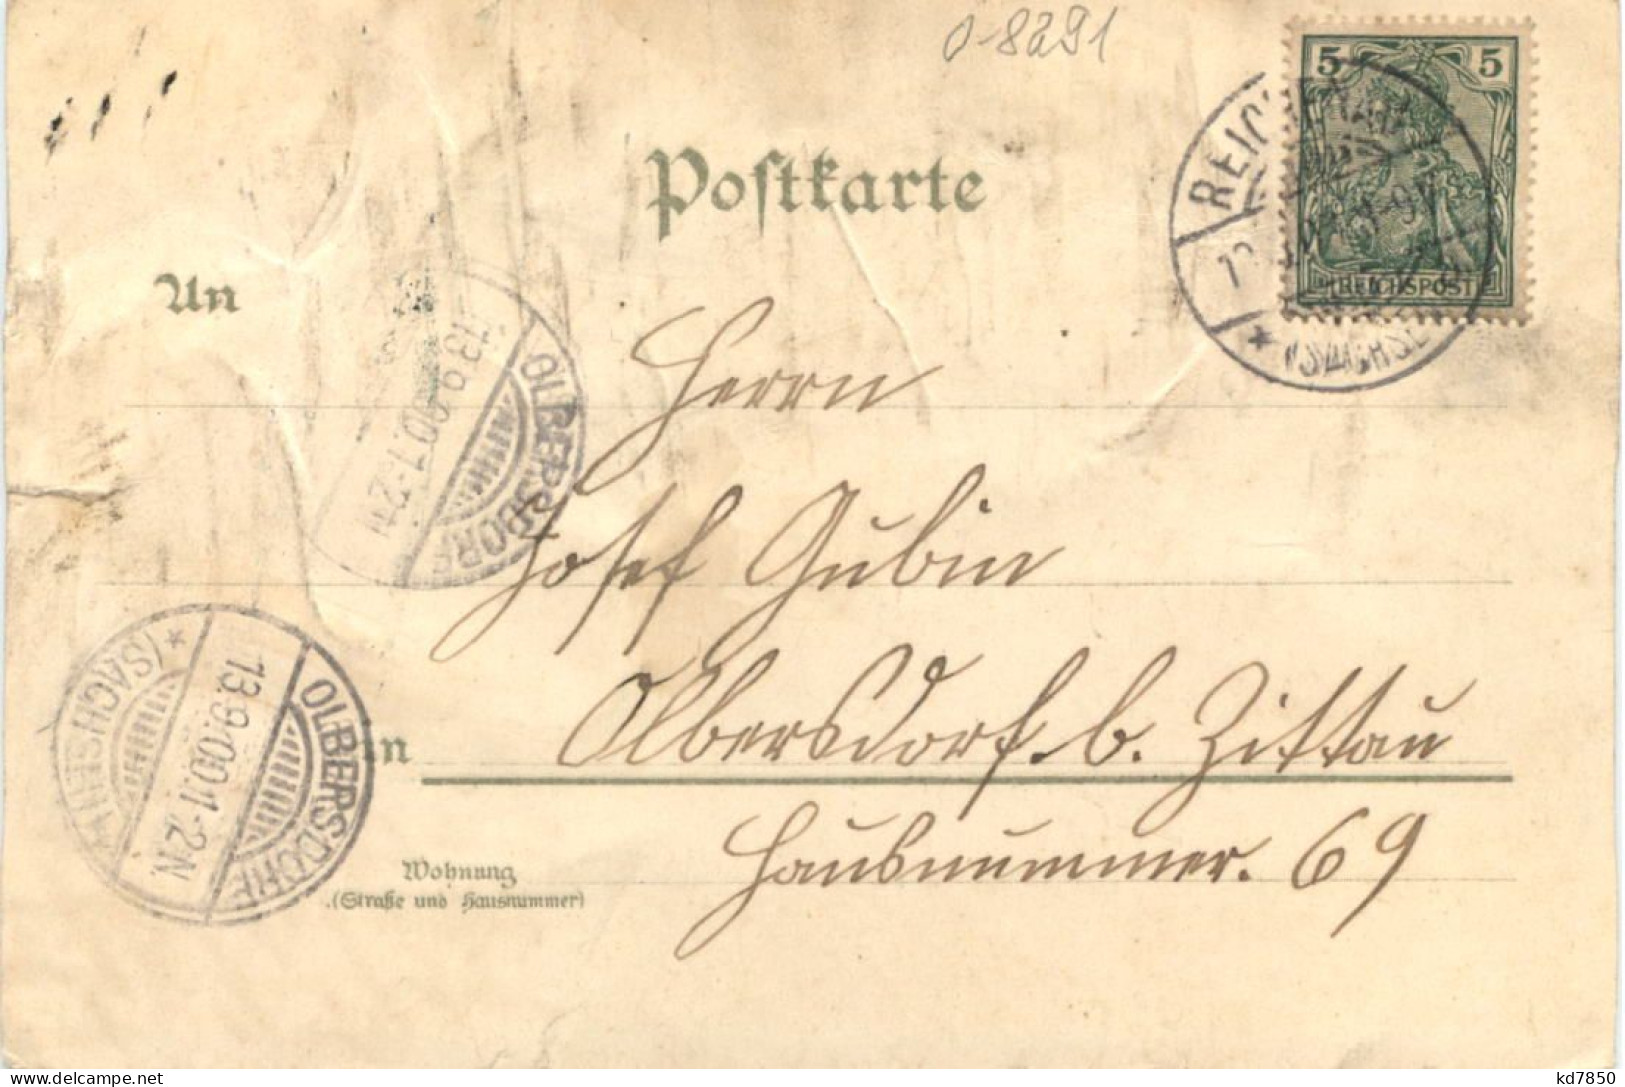 0-8291
5 5
REICHSPOST
Postkarte
An
Herrn
Josef Gubin
Olbersdorf b. Zittau
in
Hausnummer. 69
Wohnung
(Straße und Hausnummer)
OLBERSDORF
13.9.00.1-2.N
OLBERSDORF
13.9.00.1-2.N.
* (SACHSEN)
delcampe.net
kd7850